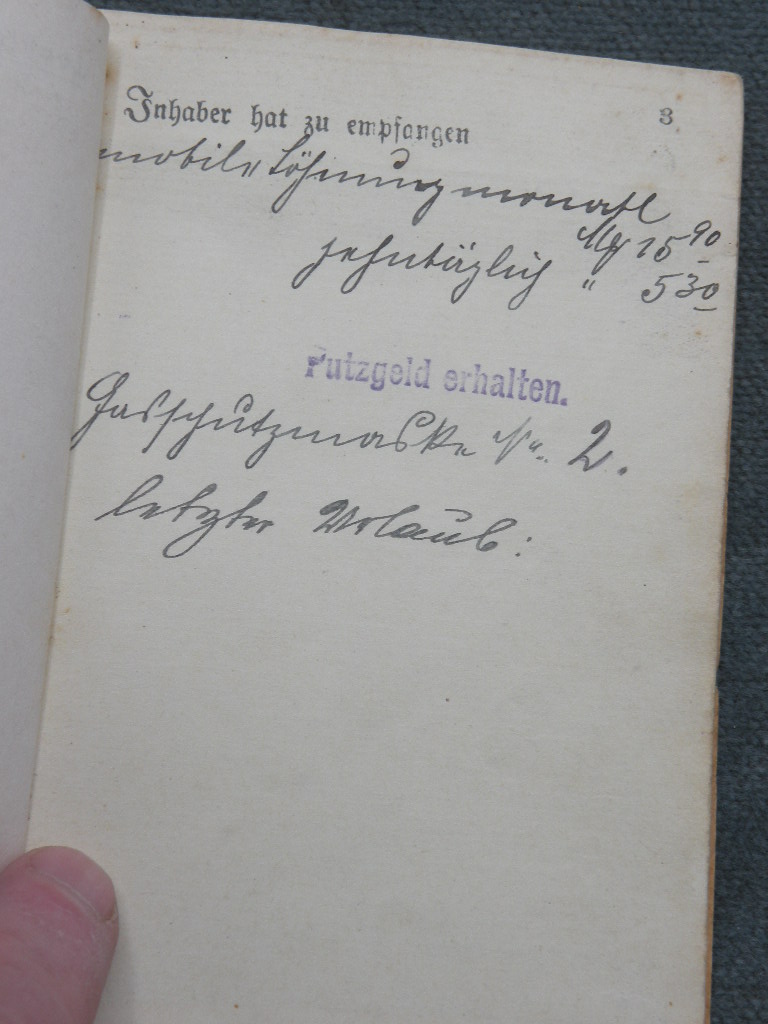 3
Inhaber hat zu empfangen
mobile Löhnung monatl
Mk 15 90
zehntäglich " 5 30
Putzgeld erhalten.
Gasschutzmaske Nr. 2.
letzter Urlaub: